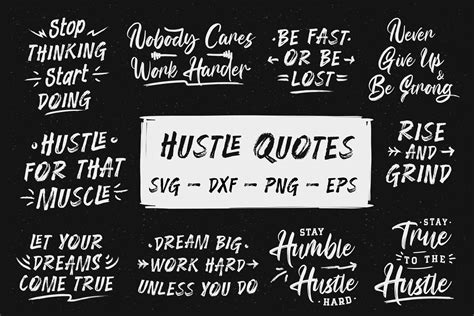 Stop
THINKING
Start
DOING
Nobody Cares
Work Harder
BE FAST
OR BE
LOST
Never
Give Up &
Be Strong
HUSTLE
FOR THAT
MUSCLE
HUSTLE QUOTES
SVG - DXF - PNG - EPS
RISE
AND
GRIND
LET YOUR
DREAMS
COME TRUE
DREAM BIG
WORK HARD
UNLESS YOU DO
STAY
Humble
Hustle
HARD
STAY
True
TO THE
Hustle